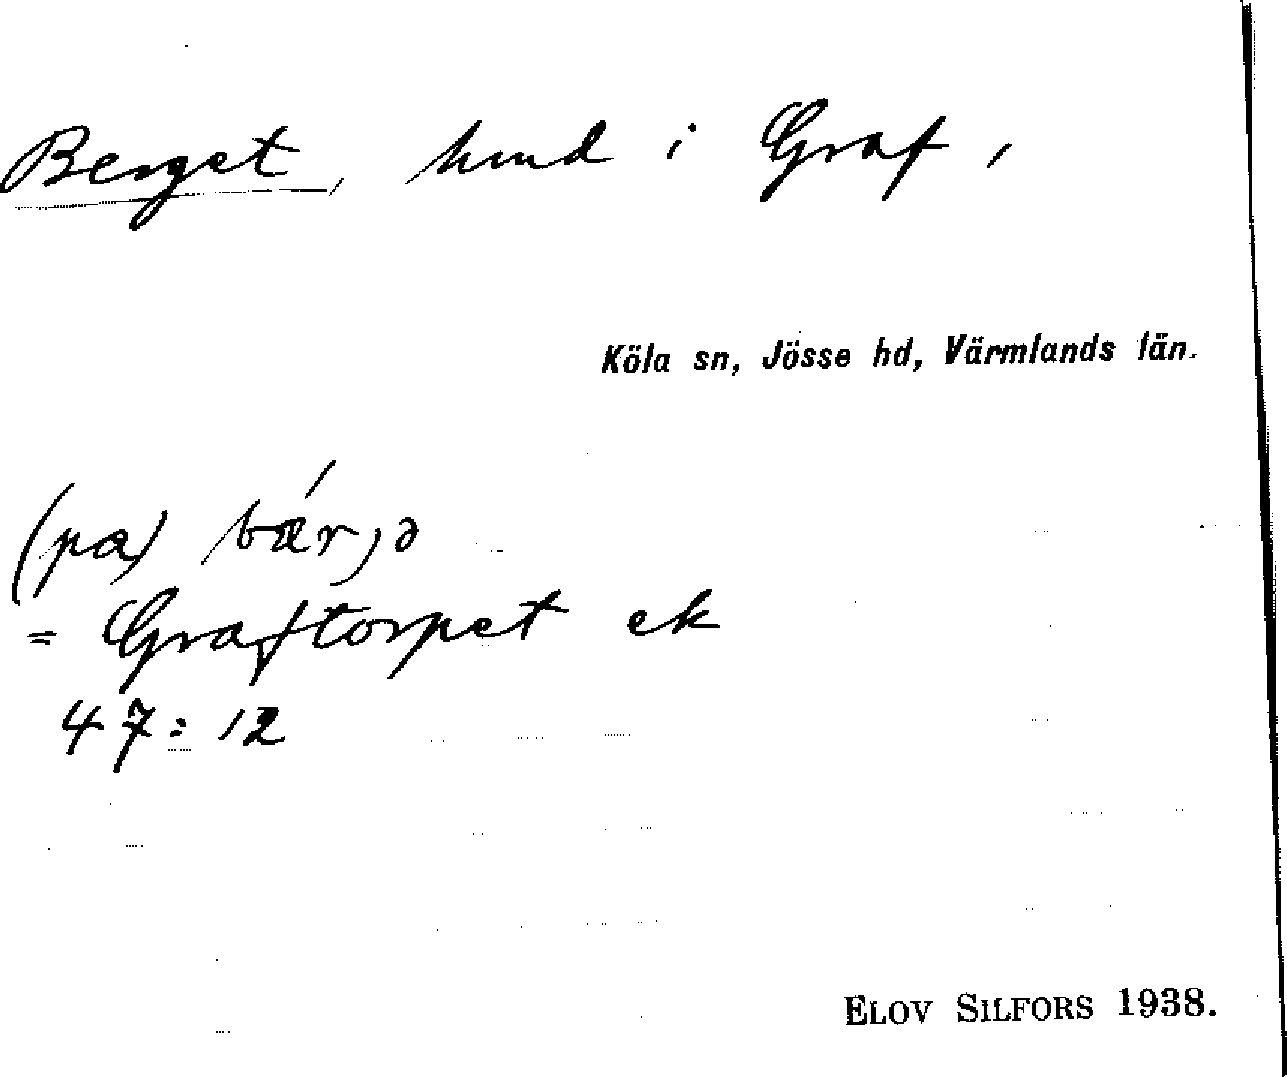 Berget, hmd i Graf,
Köla sn, Jösse hd, Värmlands län.
(pa) bǽrjə
= Graftorpet ek
47:12
ELOV SILFORS 1938.